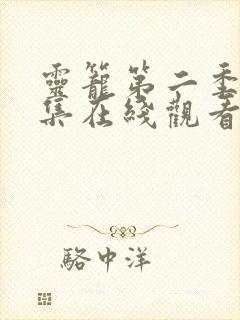 靈籠第二季
集在綫觀看
駱中洋